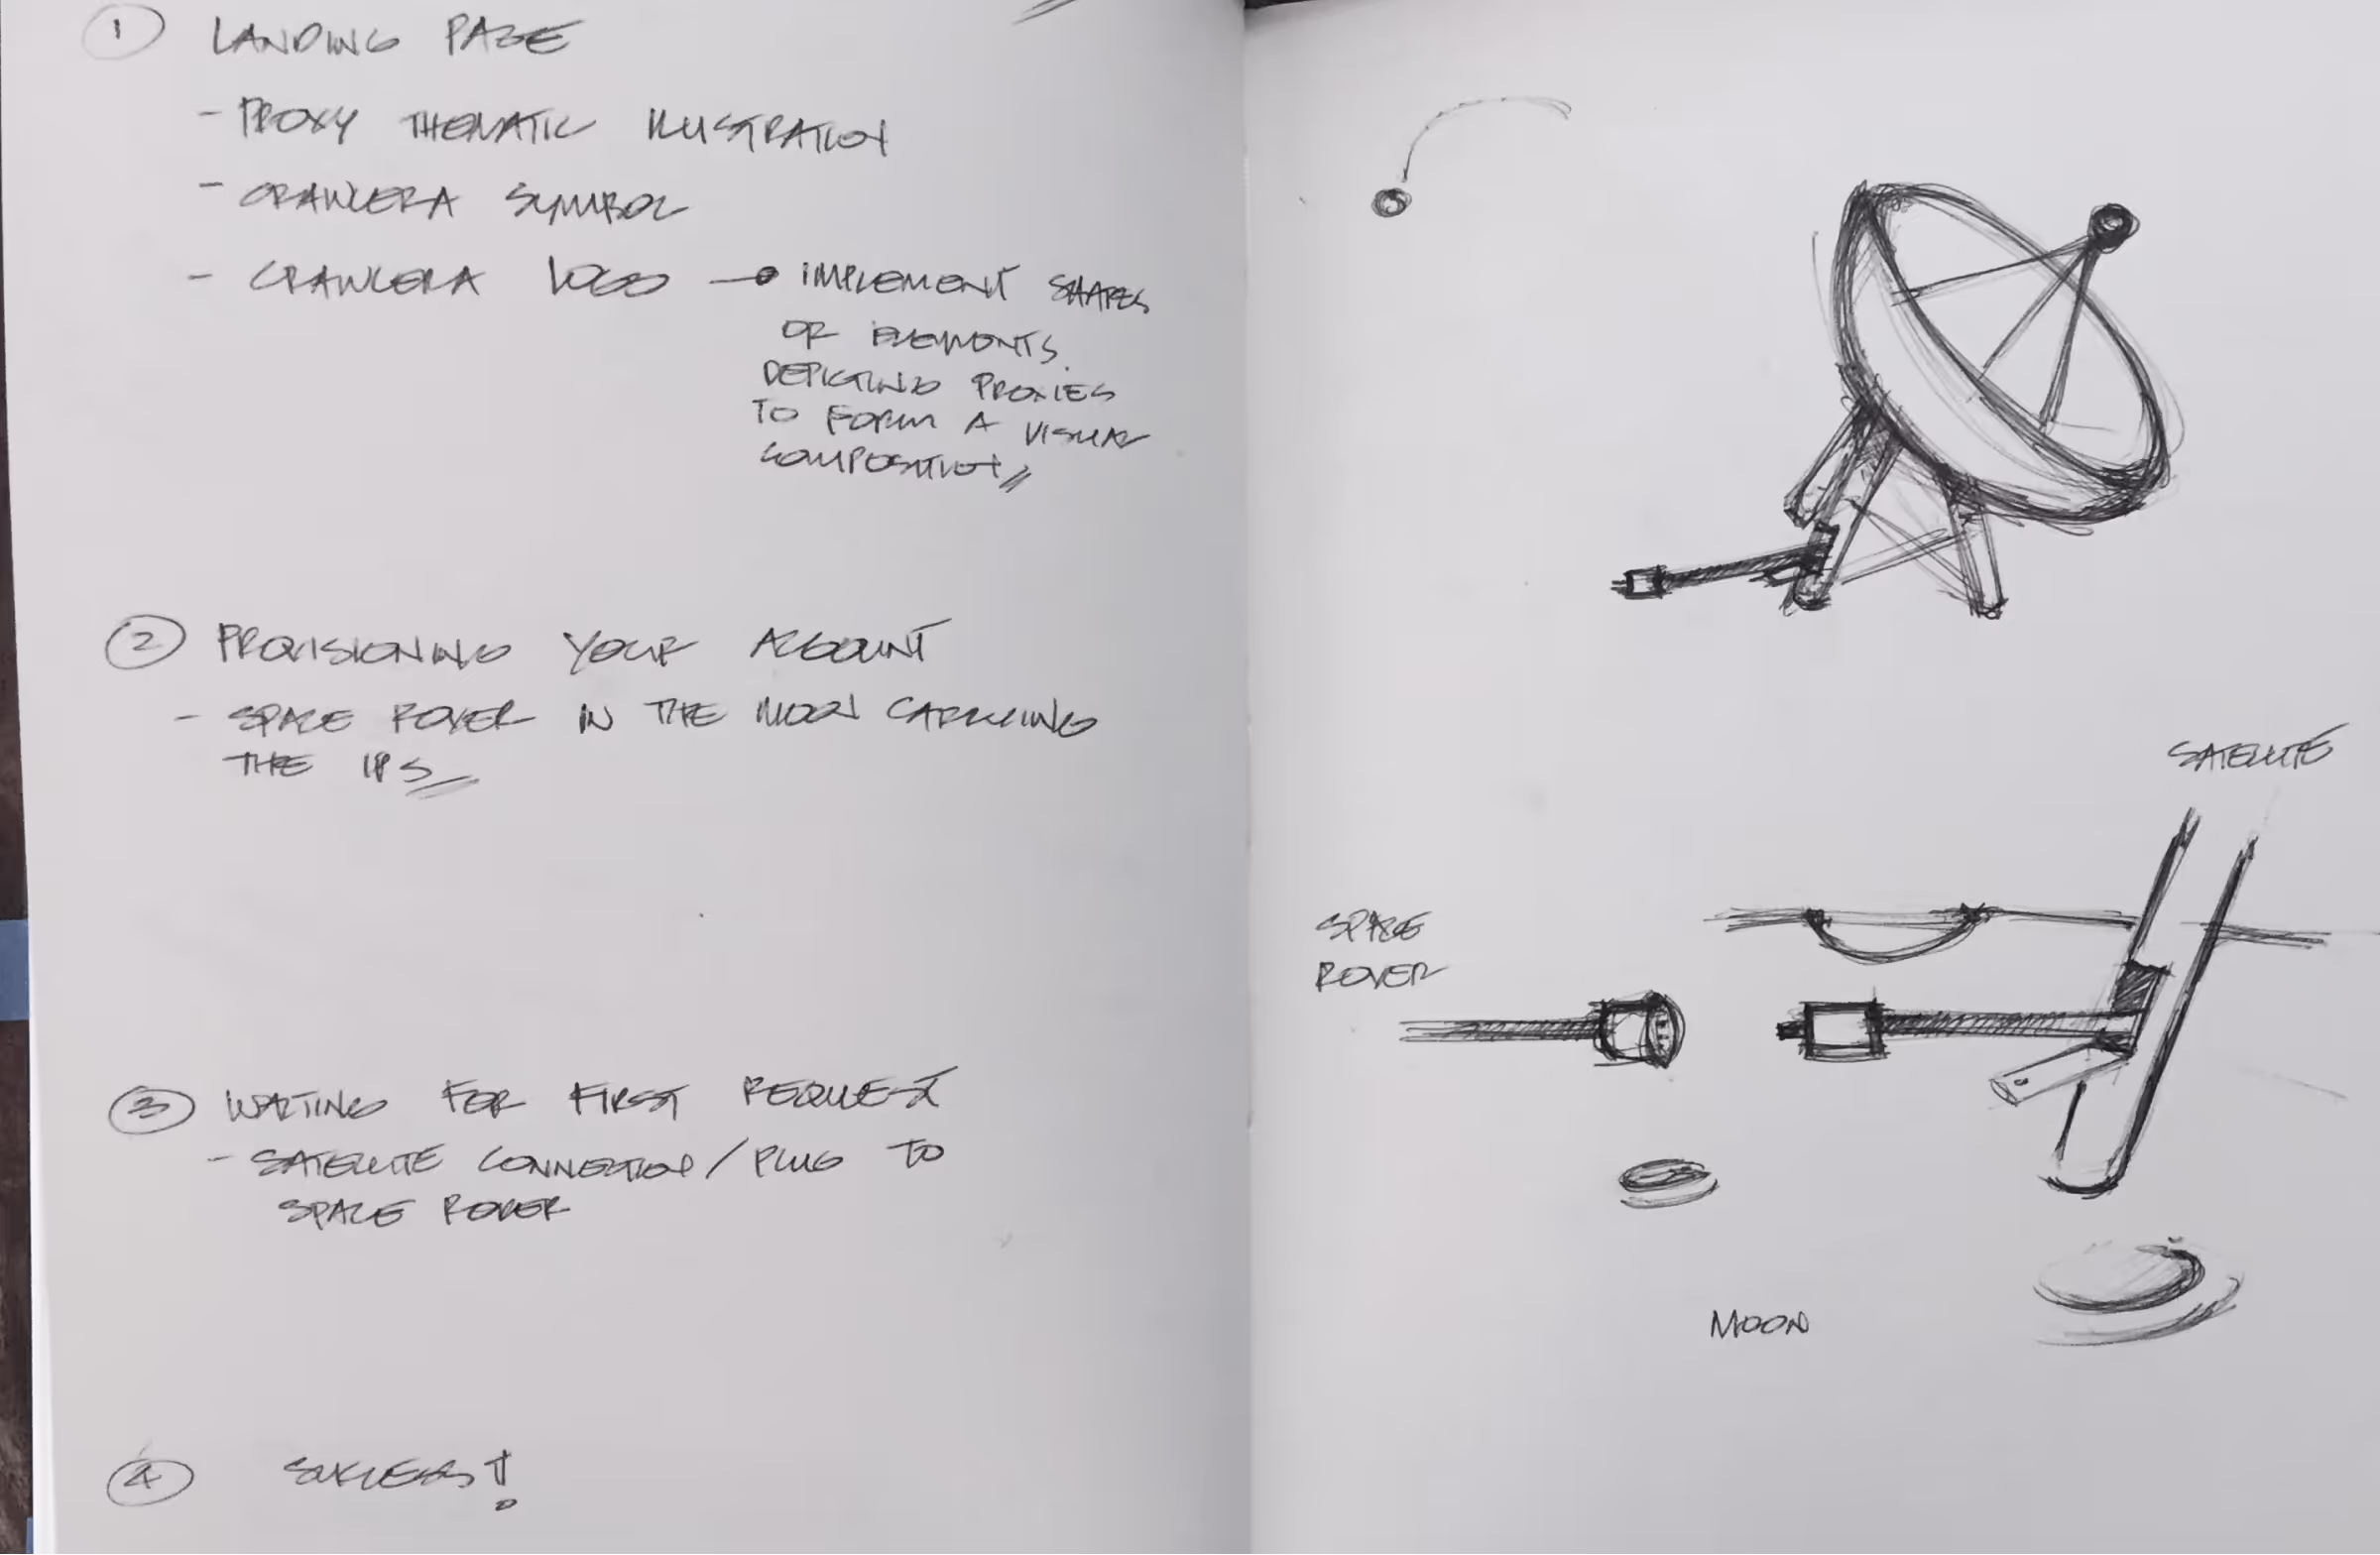 1 LANDING PAGE
- PROXY THEMATIC ILLUSTRATION
- CRAWLERA SYMBOL
- CRAWLERA LOGO → IMPLEMENT SHAPES
OF ELEMENTS
DEPICTING PROXIES
TO FORM A VISUAL
COMPOSITION
2 PROVISIONING YOUR ACCOUNT
- SPACE ROVER IN THE MOON CARRYING
THE IPS
3 WAITING FOR FIRST REQUEST
- SATELLITE CONNECTION / PLUG TO
SPACE ROVER
4 SUCCESS!
SATELLITE
SPACE
ROVER
MOON